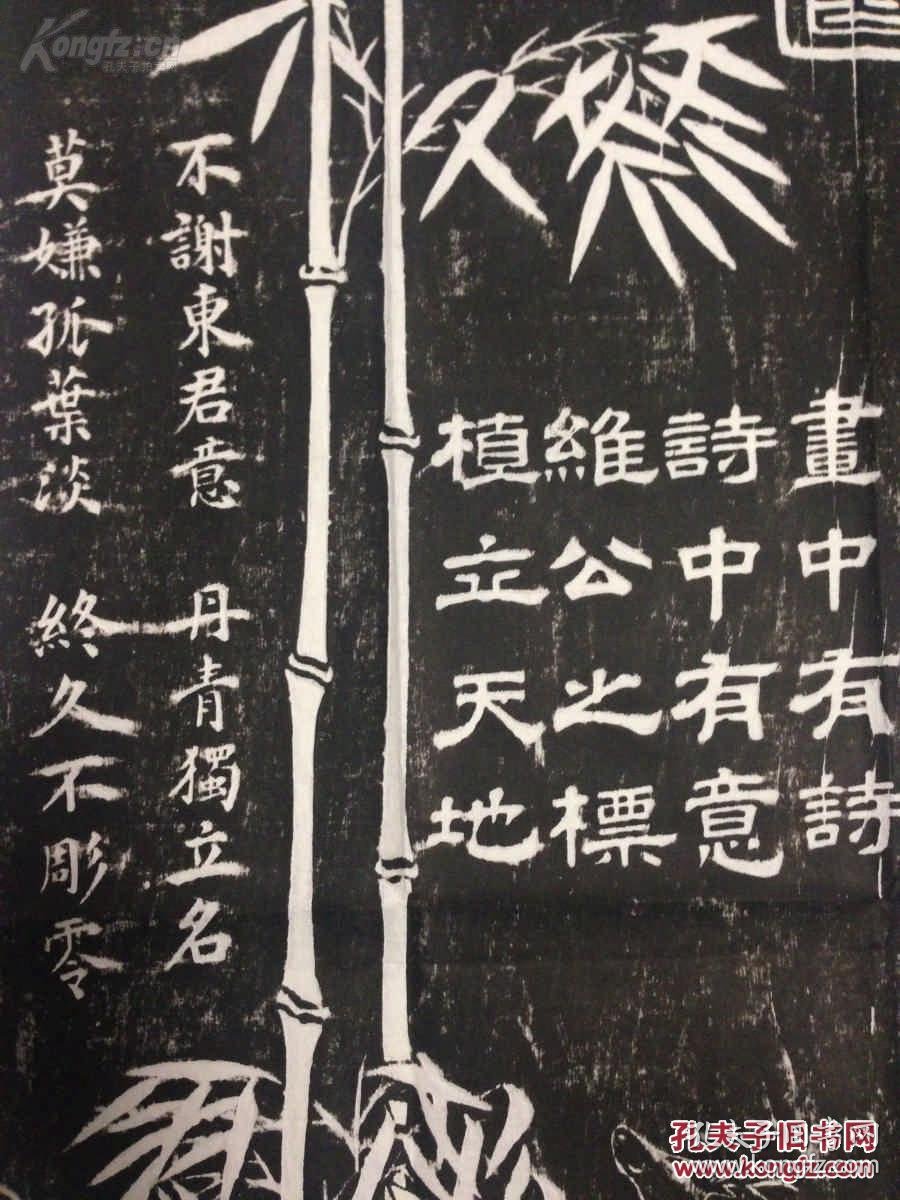 畫中有詩
詩中有意
維公之標
植立天地
不謝東君意 丹青獨立名
莫嫌孤葉淡 終久不彫零
Kongfz.cn
孔夫子拍卖网
孔夫子旧书网